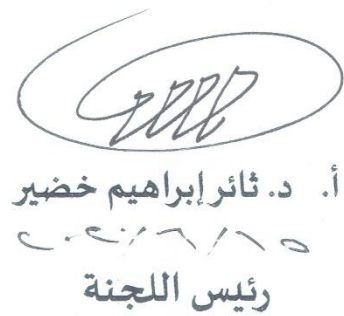 أ. د. ثائر إبراهيم خضير
٢٠٢٠/٦/١٥
رئيس اللجنة